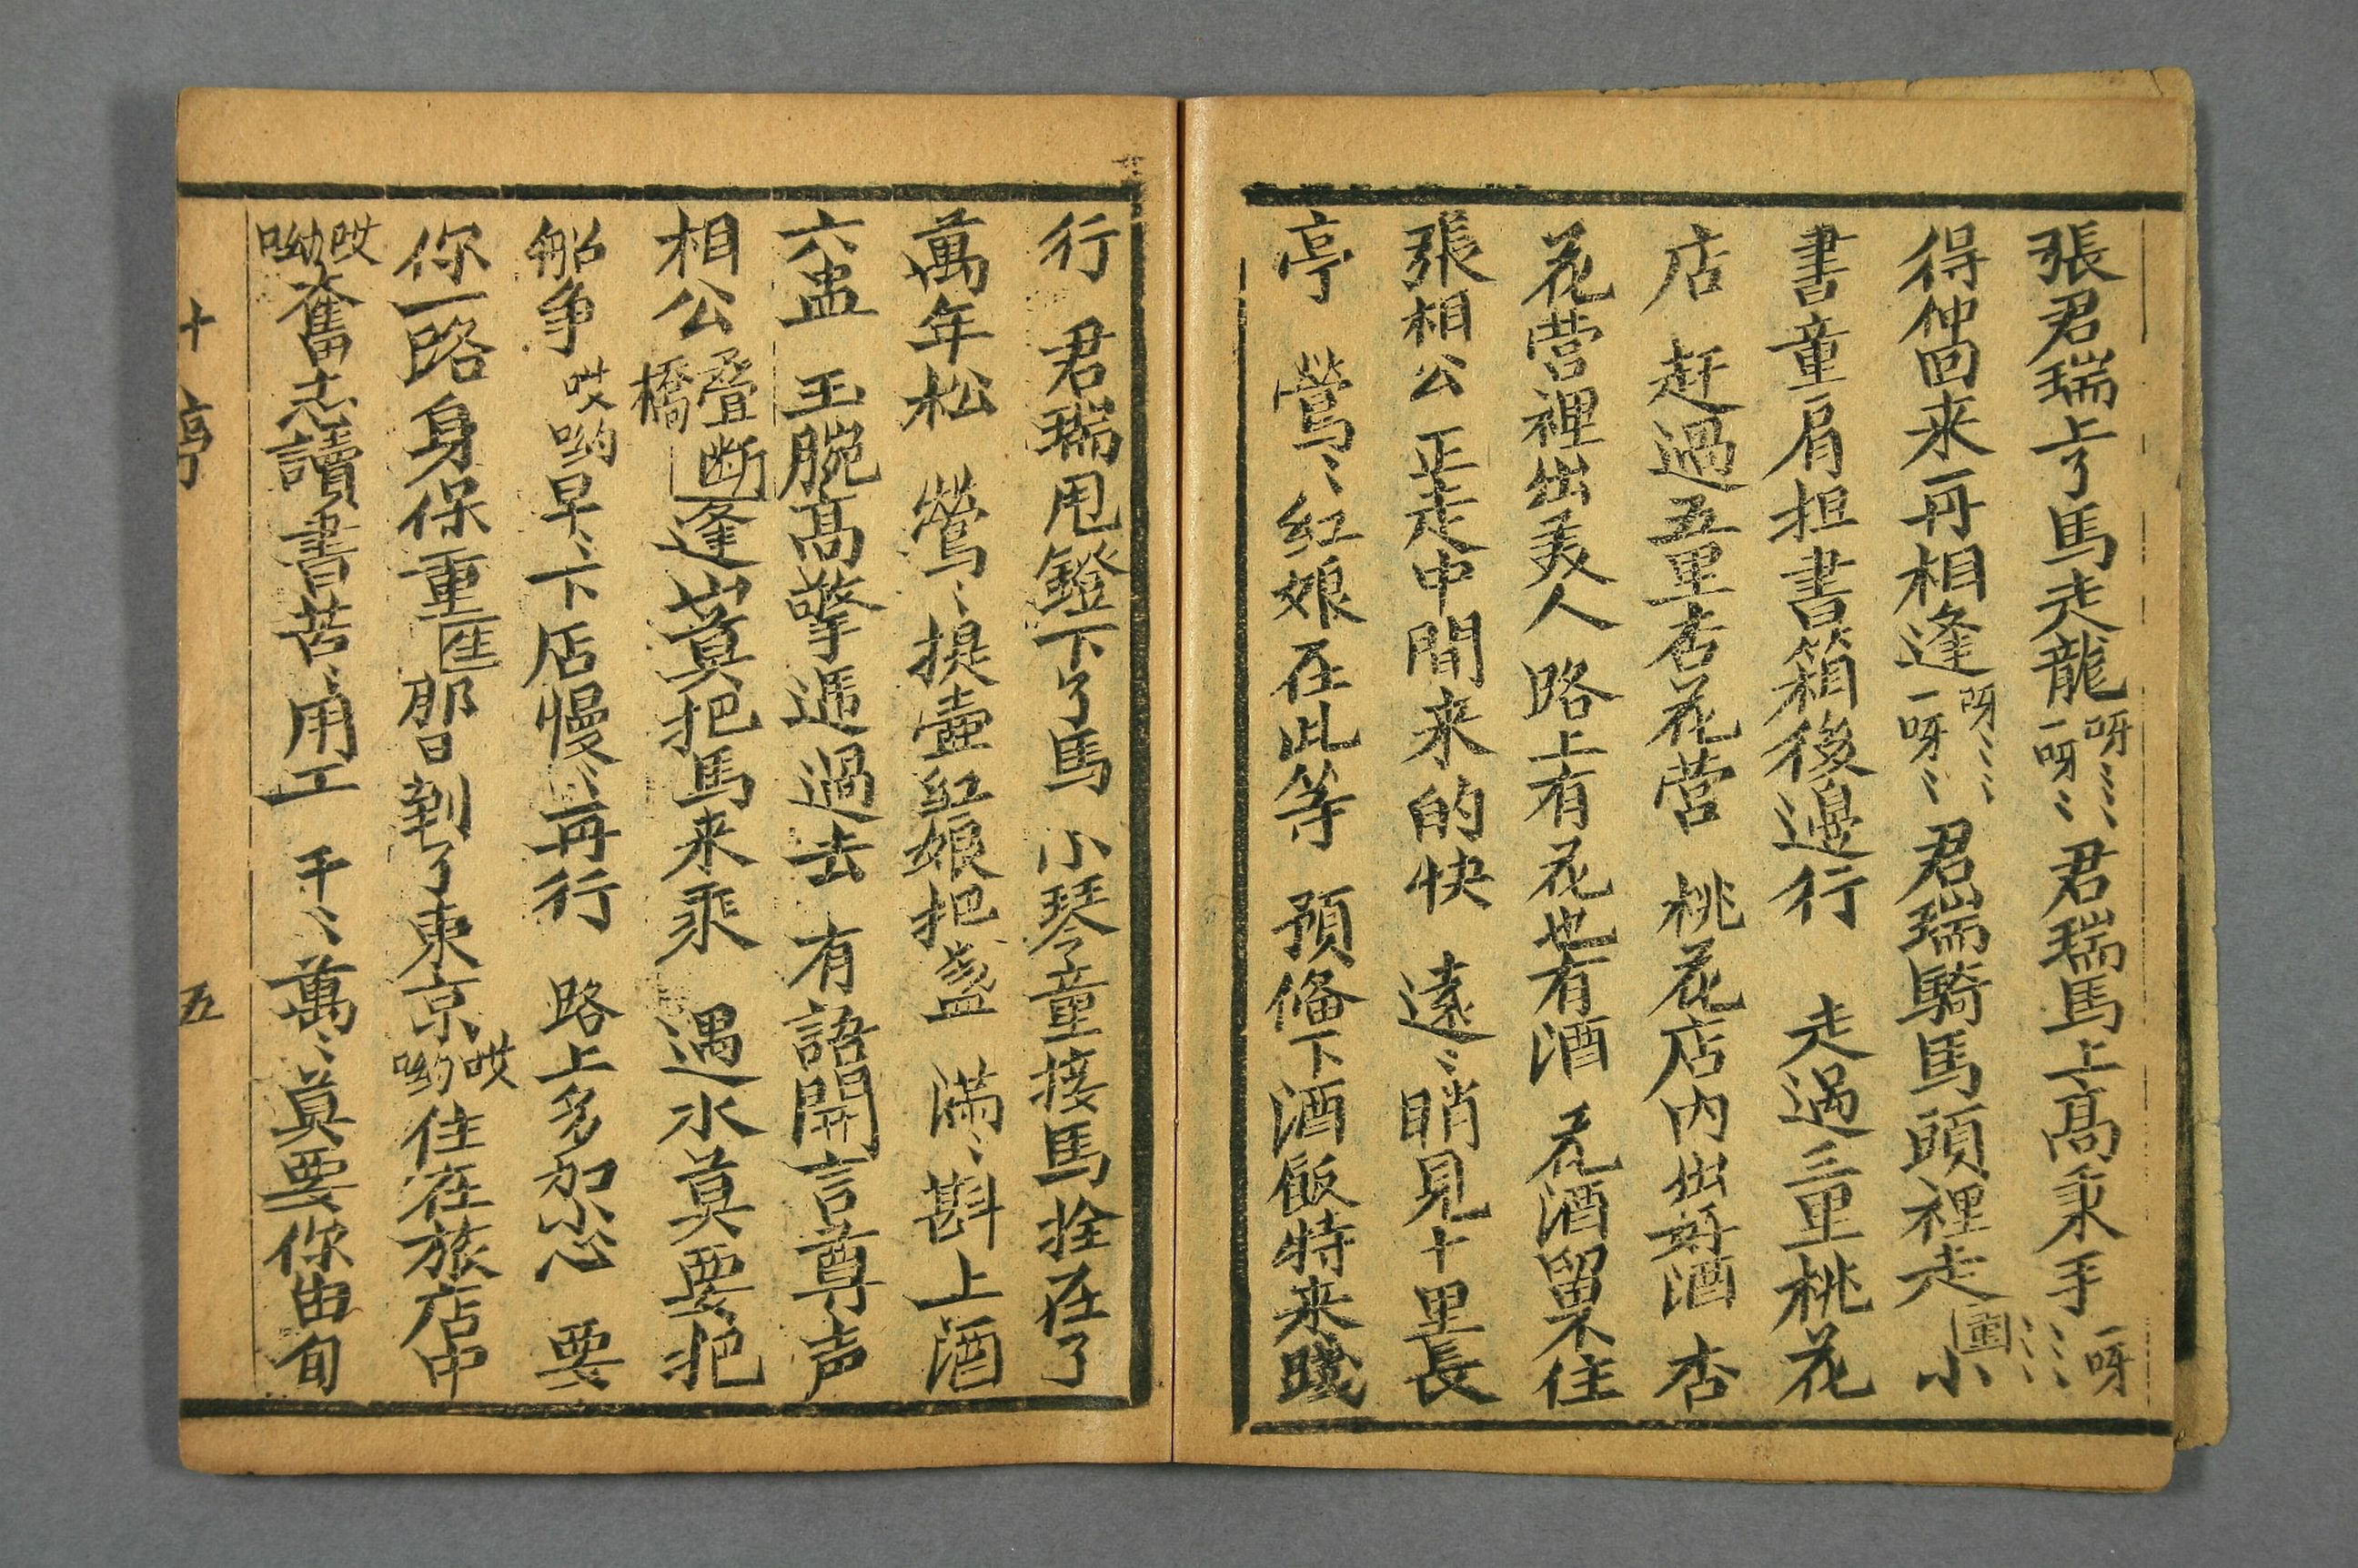 張君瑞上了馬走龍呀〻〻一呀〻〻君瑞馬上高秉手一呀〻〻〻
得仲回来再相逢呀〻〻一呀〻〻君瑞騎馬頭裡走圖小
書童肩担書箱後邊行 走過三里桃花
店 赶過五里杏花营 桃花店内出好酒 杏
花营裡出美人 路上有花也有酒 花酒留不住
張相公 正走中間来的快 遠〻睄見十里長
亭 鶯〻紅娘在此等 預俻下酒飯特来踐
行 君瑞甩鐙下了馬 小琴童接馬拴在了
萬年松 鶯〻提壷紅娘把盏 滿〻斟上酒
六盅 玉腕高擎逓過去 有語開言尊声
相公叠橋断逢崗莫把馬来乘 遇水莫要把
船争哎喲早〻下店慢〻再行 路上多加小心 要
你一路身保重匡那日到了東京哎喲住在旅店中
哎呦奮志讀書苦〻用工 千〻萬〻莫要你由旬
十亭 五